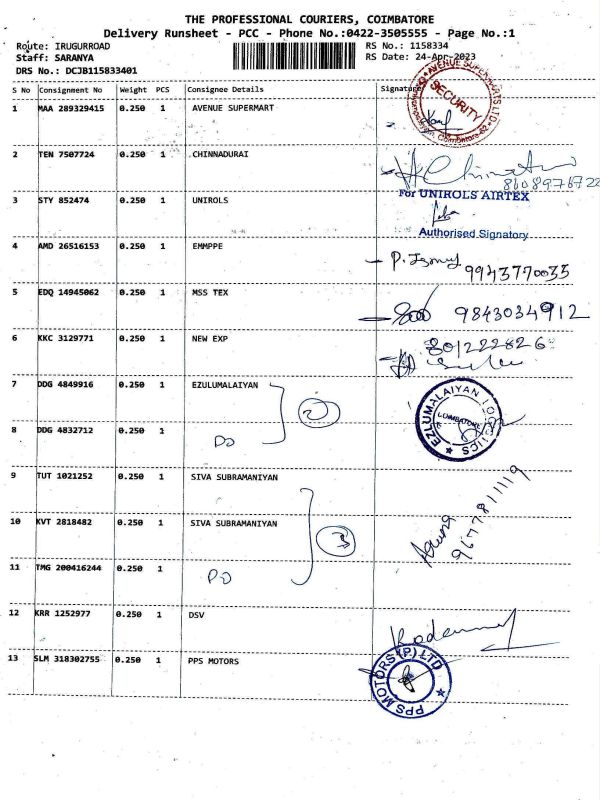 THE PROFESSIONAL COURIERS, COIMBATORE
Delivery Runsheet - PCC - Phone No.:0422-3505555 - Page No.:1
Route: IRUGURROAD RS No.: 1158334
Staff: SARANYA RS Date: 24-Apr-2023
DRS No.: DCJB115833401
S No Consignment No Weight PCS Consignee Details Signature
AVENUE SUPERMARTS LTD
SECURITY
Coimbatore-62
1 MAA 289329415 0.250 1 AVENUE SUPERMART
2 TEN 7507724 0.250 1 CHINNADURAI
8608976722
For UNIROLS AIRTEX
3 STY 852474 0.250 1 UNIROLS
Authorised Signatory
4 AMD 26516153 0.250 1 EMMPPE
9943770035
5 EDQ 14945062 0.250 1 MSS TEX 9843034912
6 KKC 3129771 0.250 1 NEW EXP 801222826
7 DDG 4849916 0.250 1 EZULUMALAIYAN
2
EZLUMALAIYAN LOGISTICS
COIMBATORE
8 DDG 4832712 0.250 1
DO
9 TUT 1021252 0.250 1 SIVA SUBRAMANIYAN
9677811119
10 KVT 2818482 0.250 1 SIVA SUBRAMANIYAN
3
11 TMG 200416244 0.250 1
DO
12 KRR 1252977 0.250 1 DSV
13 SLM 318302755 0.250 1 PPS MOTORS
PPS MOTORS (P) LTD